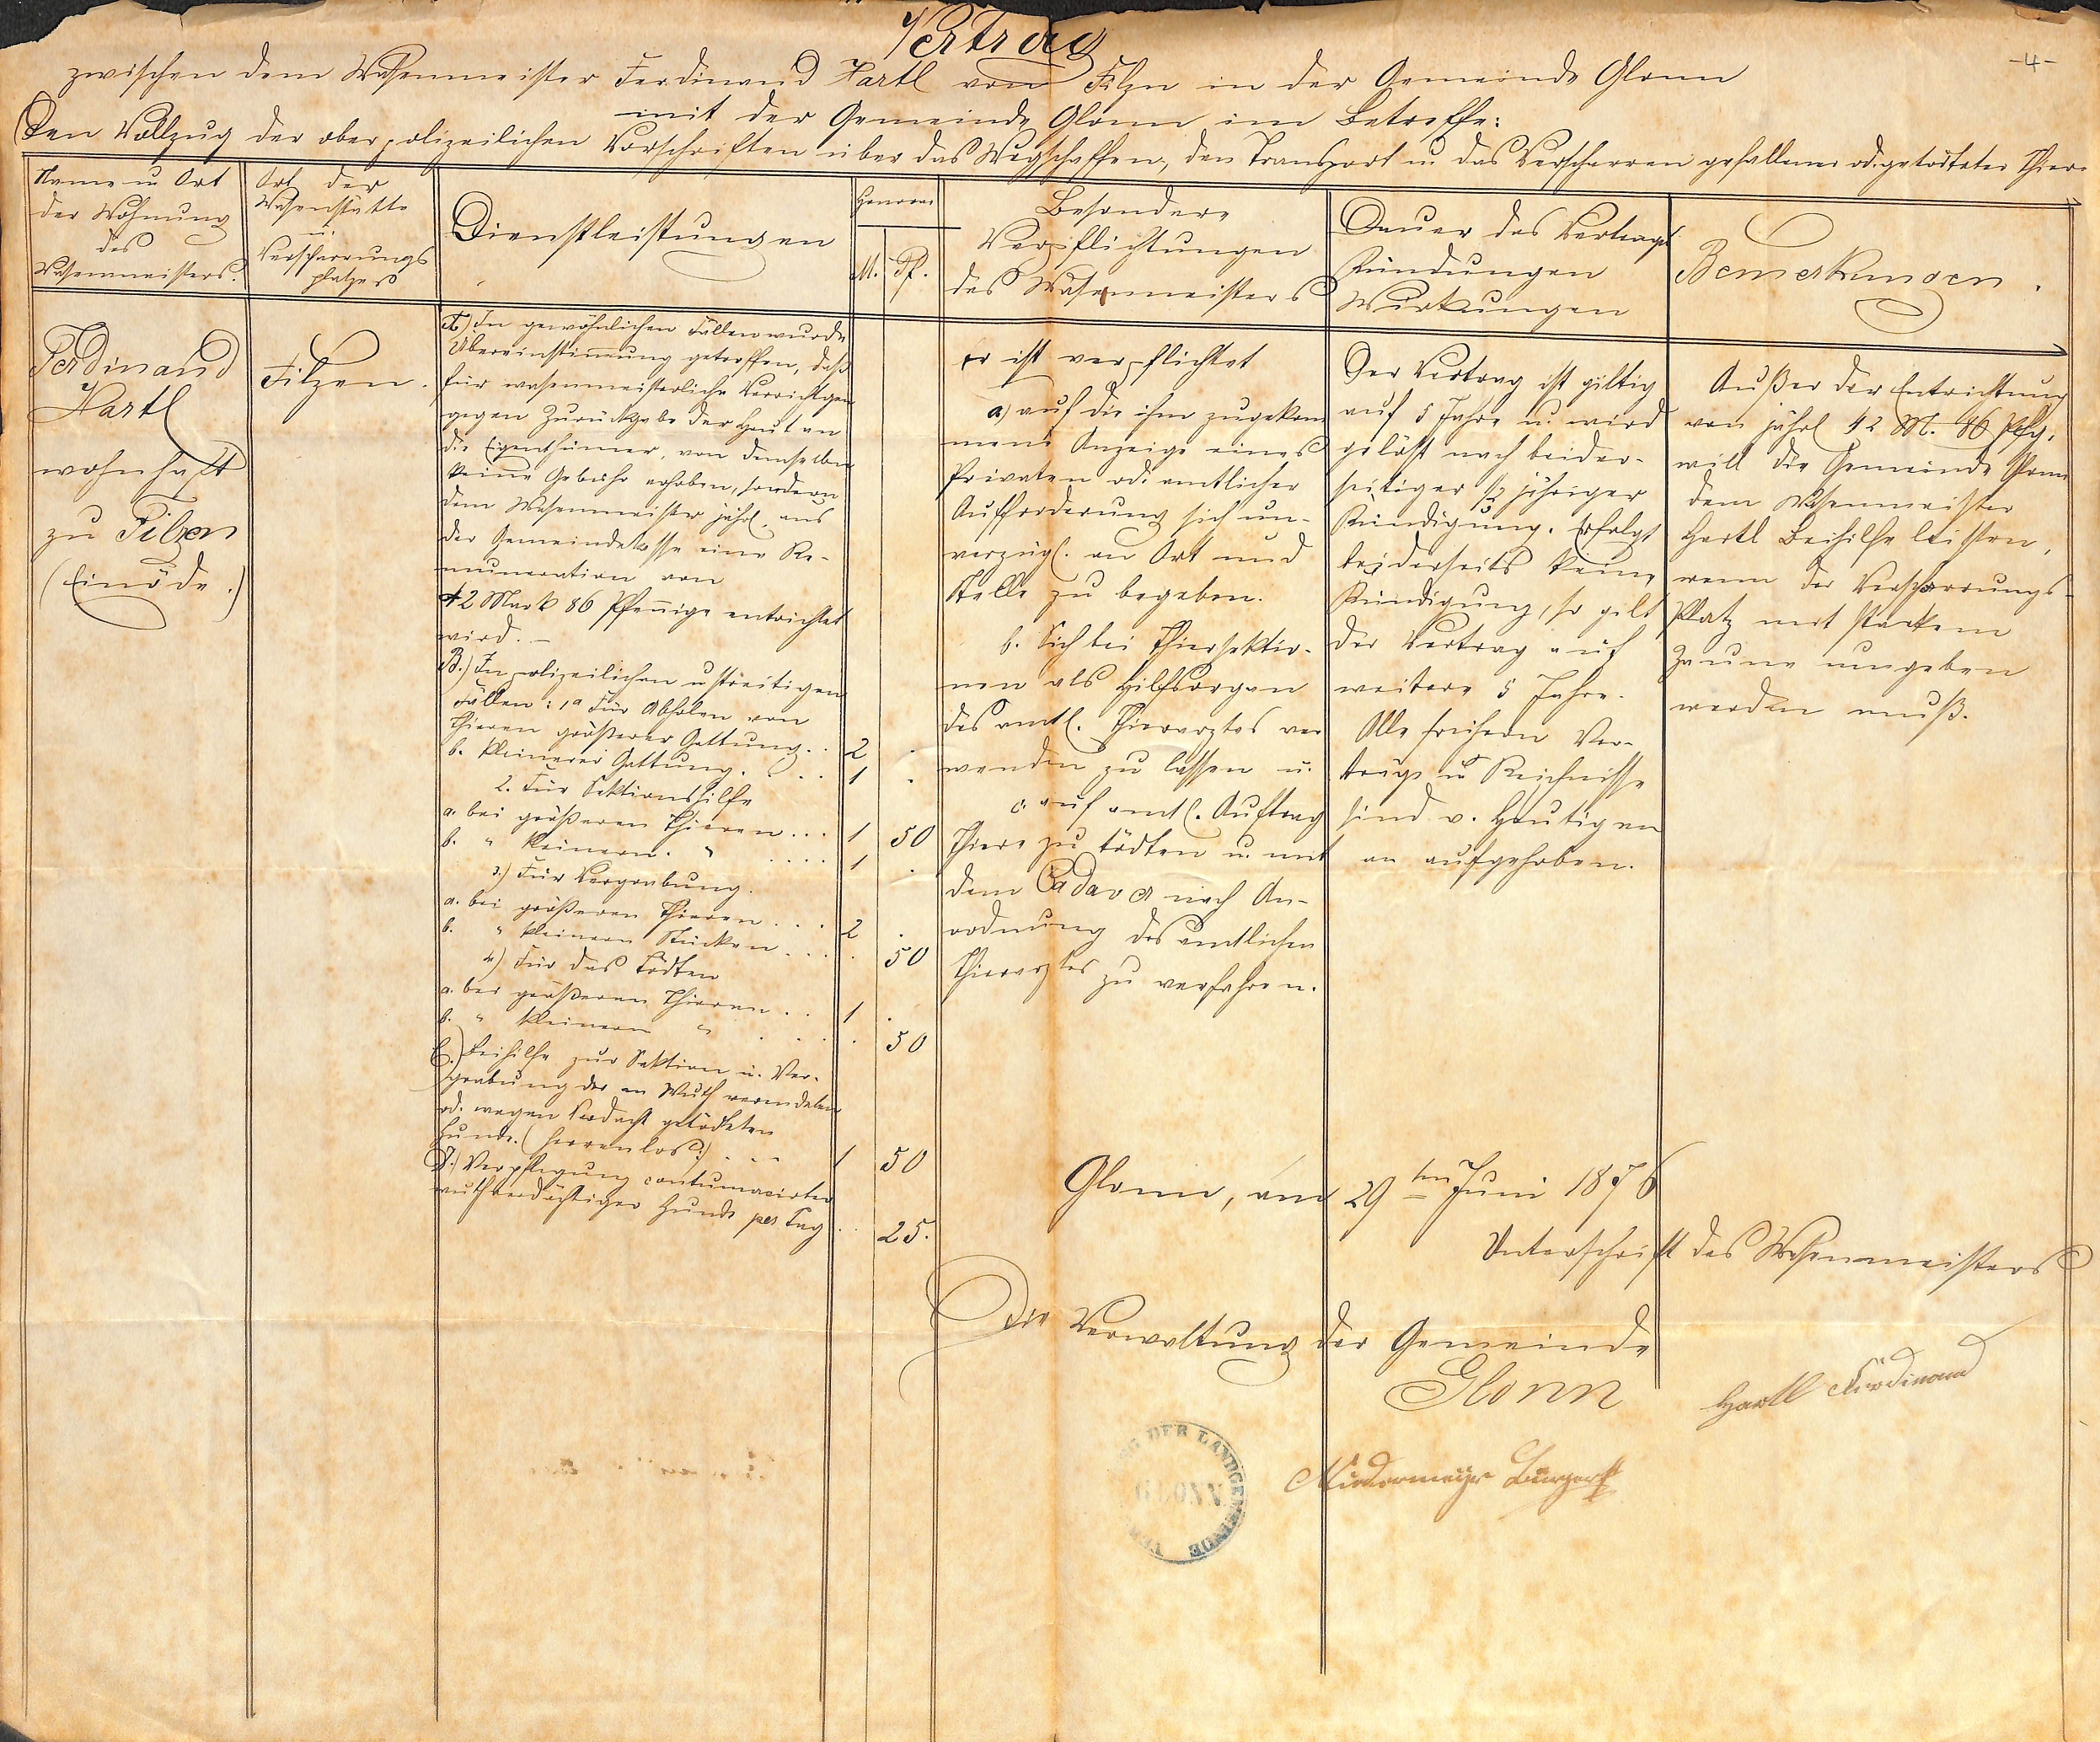 Vertrag
-4-
zwischen dem Wasenmeister Ferdinand Hartl von Filzn in der Gemeinde Glonn
mit der Gemeinde Glonn im Betreffe:
Den Vollzug der oberpolizeilichen Vorschriften über das Wegschaffen, den Transport u. das Verscharren gefallener od. getödteter Thiere
Name u Ort
der Wohnung
des
Wasenmeisters.
Ort der
Wasenstätte
u.
Verscharrungs
platzes
Dienstleistungen
Honorar
M. Pf.
Besondere
Verpflichtungen
des Wasenmeisters
Dauer des Vertrags
Kündungen
Wirkungen
Bemerkungen.
Ferdinand
Hartl
wohnhaft
zu Filzen
(Einöde.)
Filzen.
A.) In gewöhnlichen Fällen wurde
Übereinstimmung getroffen, daß
für wasenmeisterliche Verrichtgen
gegen Zurückgabe der Haut an
die Eigenthümer, von demselben
keine Gebühr erhoben, sondern
dem Wasenmeister jährl. aus
der Gemeindekasse eine Re-
muneration von
42 Mark 86 Pfennige entrichtet
wird. –
B.) In polizeilichen u streitigen
Fällen: 1a Für Abholen von
Thieren größerer Gattung. . 2 .
b. kleinerer Gattung. . . . 1 .
2. Für Sektionshilfe
a. bei größeren Thieren . . . 1 50
b. " kleinern. " . . . . 1 .
3.) Für Vergrabung.
a. bei größeren Thieren . . . 2 .
b. " kleinern Stücken . . . . 50
4.) Für das Tödten
a. bei größeren Thieren . . 1 .
b. " kleinern " . . . . 50
C.) Beihilfe zur Sektion u. Ver-
grabung der an Wuth verendeten
od. wegen Verdacht getödteten
Hunde. (herrenlos.) . . . 1 50
D.) Verpflegung contumacirter
wuthverdächtiger Hunde per Tag . . 25.
er ist verpflichtet
a) auf die ihm zugekom
mene Anzeige eines
Privaten od. amtlicher
Aufforderung sich un-
verzügl. an Ort und
Stelle zu begeben.
b. Sich bei Thiersektio-
nen als Hilfsorgan
des amtl. Thierarztes ver
wenden zu lassen u.
c. auf amtl. Auftrag
Thiere zu tödten u. mit
dem Cadaver nach An-
ordnung des amtlichen
Thierarztes zu verfahren.
Der Vertrag ist giltig
auf 5 Jahre u. wird
gelöst nach beider-
seitiger ½ jähriger
Kündigung. Erfolgt
beiderseits keine
Kündigung, so gilt
der Vertrag auf
weitere 5 Jahre.
Alle frühern Ver-
träge u Reichnisse
sind v. Heutigen
an aufgehoben.
Außer der Entrichtung
von jährl 42 M. 86 Pfg.
will die Gemeinde Glonn
dem Wasenmeister
Hartl Beihilfe leisten,
wenn der Verscharrungs-
Platz mit starkem
Zaune umgeben
werden muß.
Glonn, am 29ten Juni 1876
Unterschrift des Wasenmeisters
Die Verwaltung der Gemeinde
Glonn
Hartl Ferdinand
Niedermeyr Burgerst
DER LANDGEMEINDE
GLONN